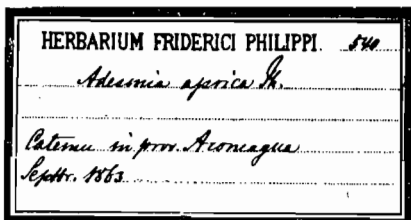 HERBARIUM FRIDERICI PHILIPPI. 540
Adesmia aprica Ph.
Catemu in prov. Aconcagua
Septbr. 1863